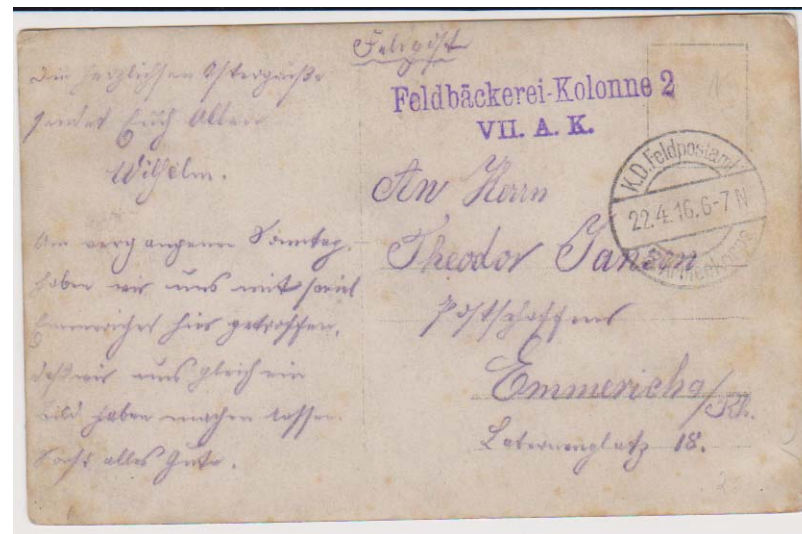 Feldpost
Die herzlichsten Ostergrüße
sendet Euch Allen
Wilhelm.
Am vergangenen Sonntag
haben wir uns mit soviel
Emmericher hier getroffen,
daß wir uns gleich ein
Bild haben machen lassen.
Sonst alles Gute.
Feldbäckerei-Kolonne 2
VII. A. K.
K.D. Feldpostamt
22.4.16.6-7 N
An Herrn
Theodor Janßen
Postschaffner
Emmerich a/Rh.
Laternenplatz 18.